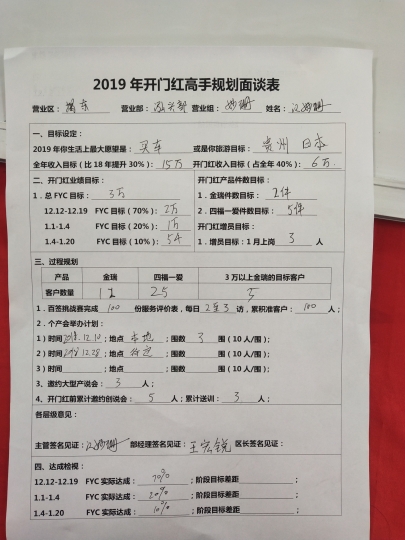 2019 年开门红高手规划面谈表
营业区： 揭东 营业部： 营业组： 姓名：
一、目标设定：
2019 年你生活上最大愿望是： 买车 或是你旅游目标： 贵州 日本
全年收入目标（比 18 年提升 30%）： 15万 开门红收入目标（占全年 40%）： 6万
二、开门红业绩目标： 开门红产品件数目标：
1．总 FYC 目标： 3万 1．金瑞件数目标： 2件
12.12-12.19 FYC 目标（70%）： 2万 2．四福一爱件数目标： 5件
1.1-1.4 FYC 目标（20%）： 1万 开门红增员目标：
1.4-1.20 FYC 目标（10%）： 1．增员目标：1 月上岗 3 人
三、过程规划
产品 金瑞 四福一爱 3 万以上金瑞的目标客户
客户数量 12 25 5
1．百签挑战赛完成 100 份服务评价表，每日 2至3 访，累积准客户： 100 人；
2．个产会举办计划：
1）时间 2018.12.10 ；地点 本地 ；围数 3 围（10 人/围）；
2）时间 2018.12.28 ；地点 待定 ；围数 围（10 人/围）；
3）时间 ；地点 ；围数 围（10 人/围）；
3、邀约大型产说会： 3 人；
4．开门红前累计邀约创说会： 5 人；累计送训： 3 人；
各层级意见：
主管签名见证： 部经理签名见证： 王宏锐 区长签名见证：
四、达成检视：
12.12-12.19 FYC 实际达成： 70% ；阶段目标差距 ；
1.1-1.4 FYC 实际达成： 20% ；阶段目标差距 ；
1.4-1.20 FYC 实际达成： 10% ；阶段目标差距 ；